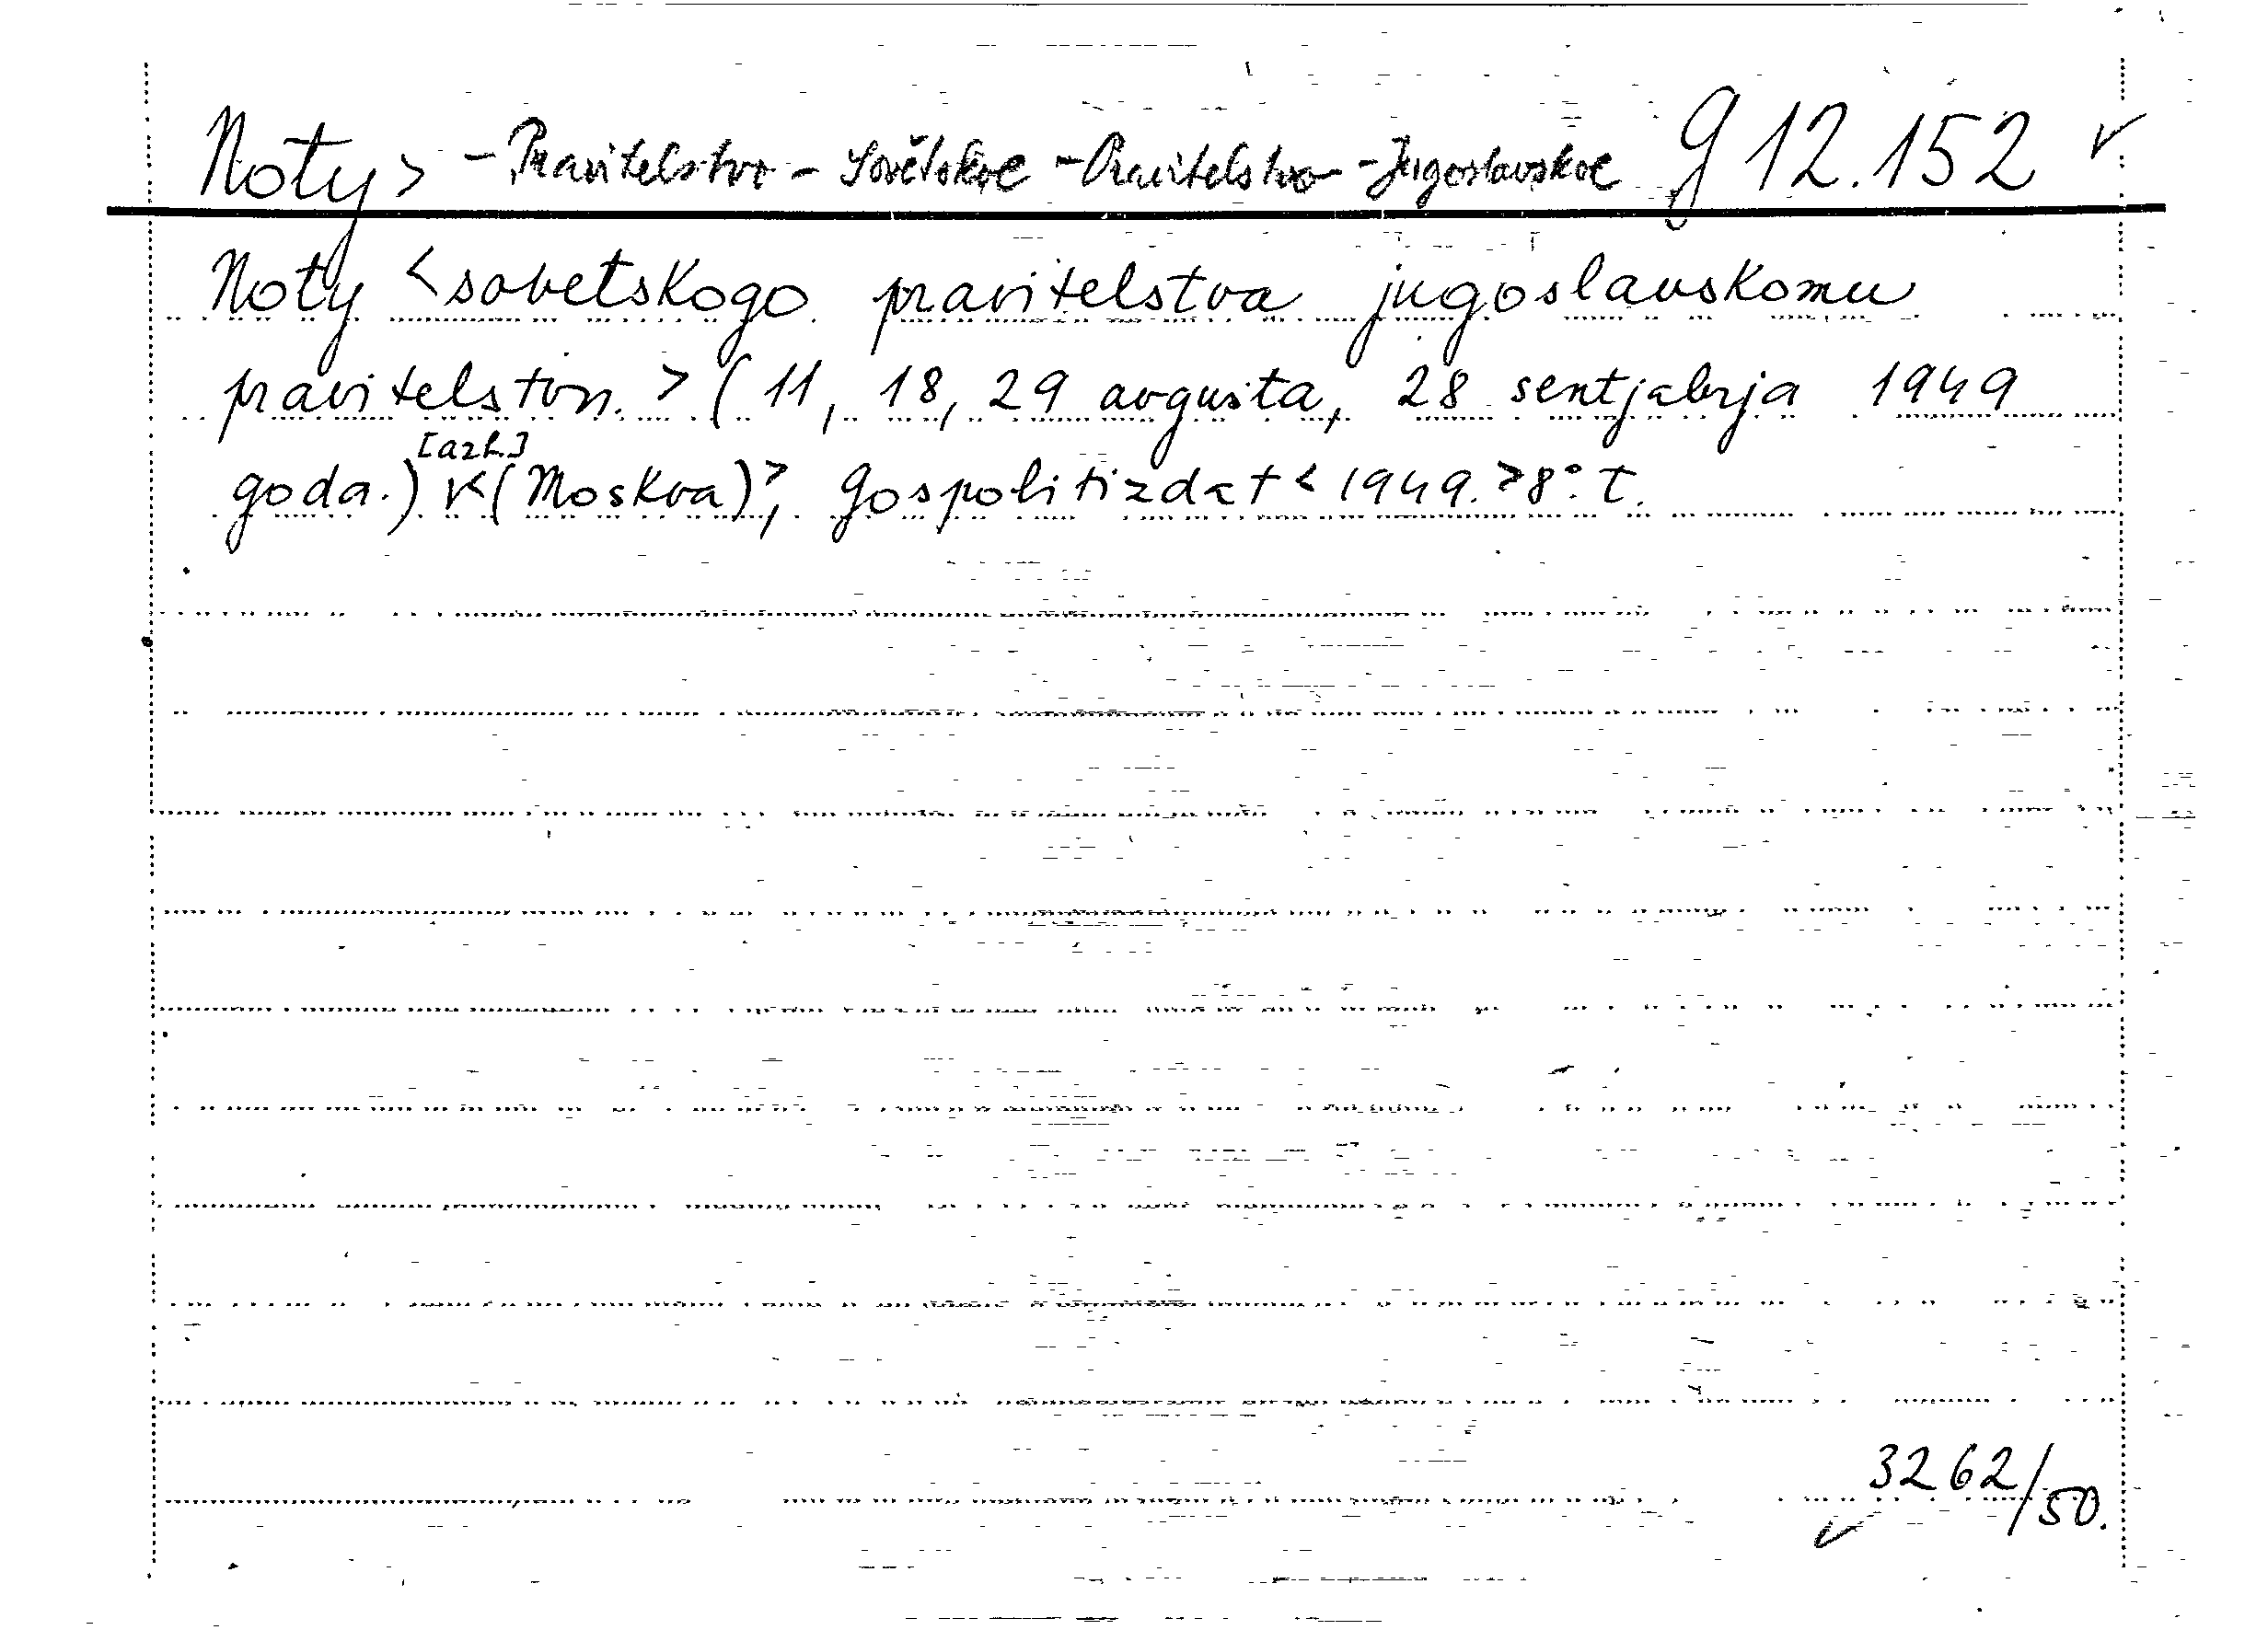 Noty > - Pravitelstvo - Sovětskoe - Pravitelstvo - Jugoslavskoe g 12.152 v
Noty < sovetskogo pravitelstva jugoslavskomu
pravitelstvn. > (11, 18, 29 avgusta, 28 sentjabrja 1949
[azb.]
goda.) < (Moskva) >, Gospolitizdat < 1949. > 8°. T.
3262/50.